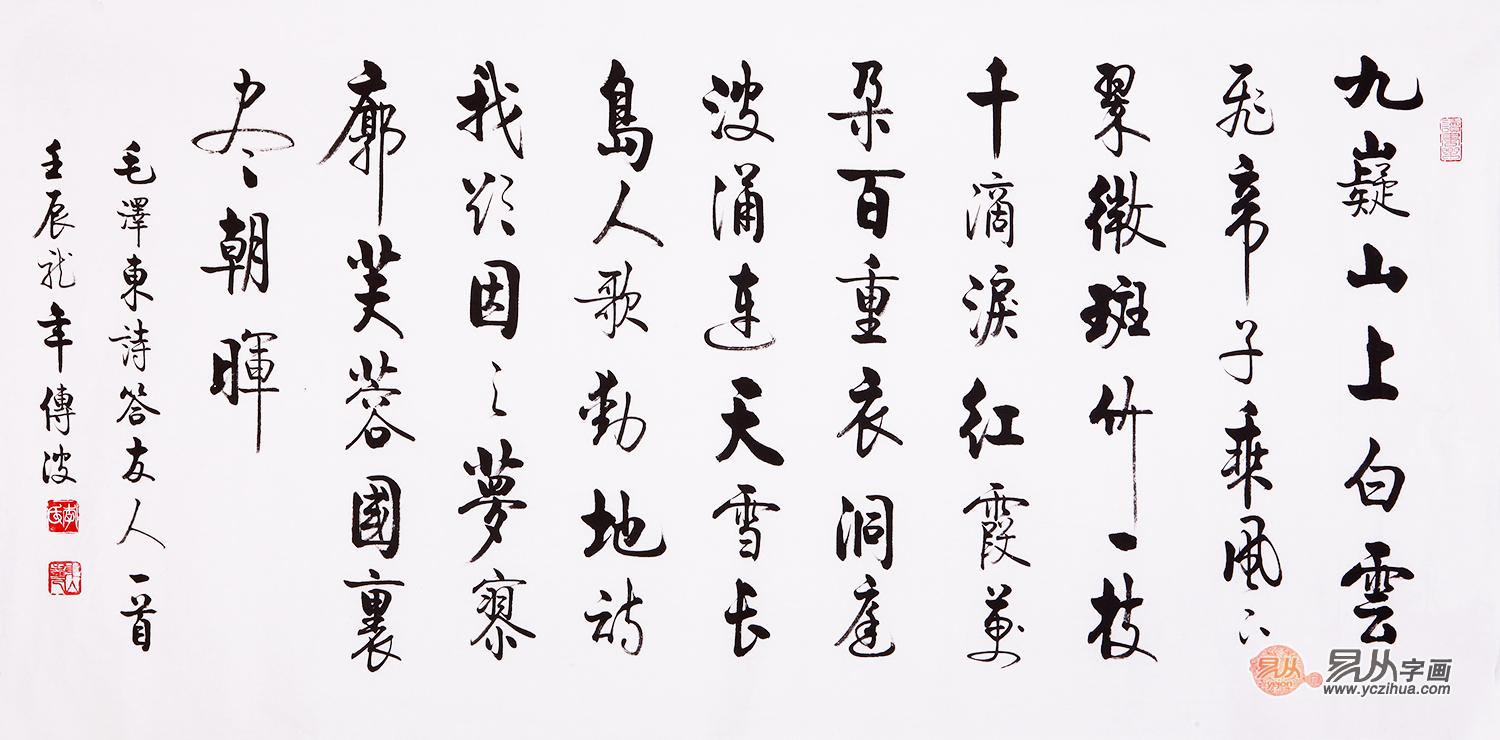 九嶷山上白雲
飛帝子乘風下
翠微斑竹一枝
千滴淚紅霞萬
朵百重衣洞庭
波涌連天雪長
島人歌動地詩
我欲因之夢寥
廓芙蓉國裏
尽朝暉
毛澤東詩答友人一首
壬辰龍年傳波
易从
易从字画
www.yczihua.com